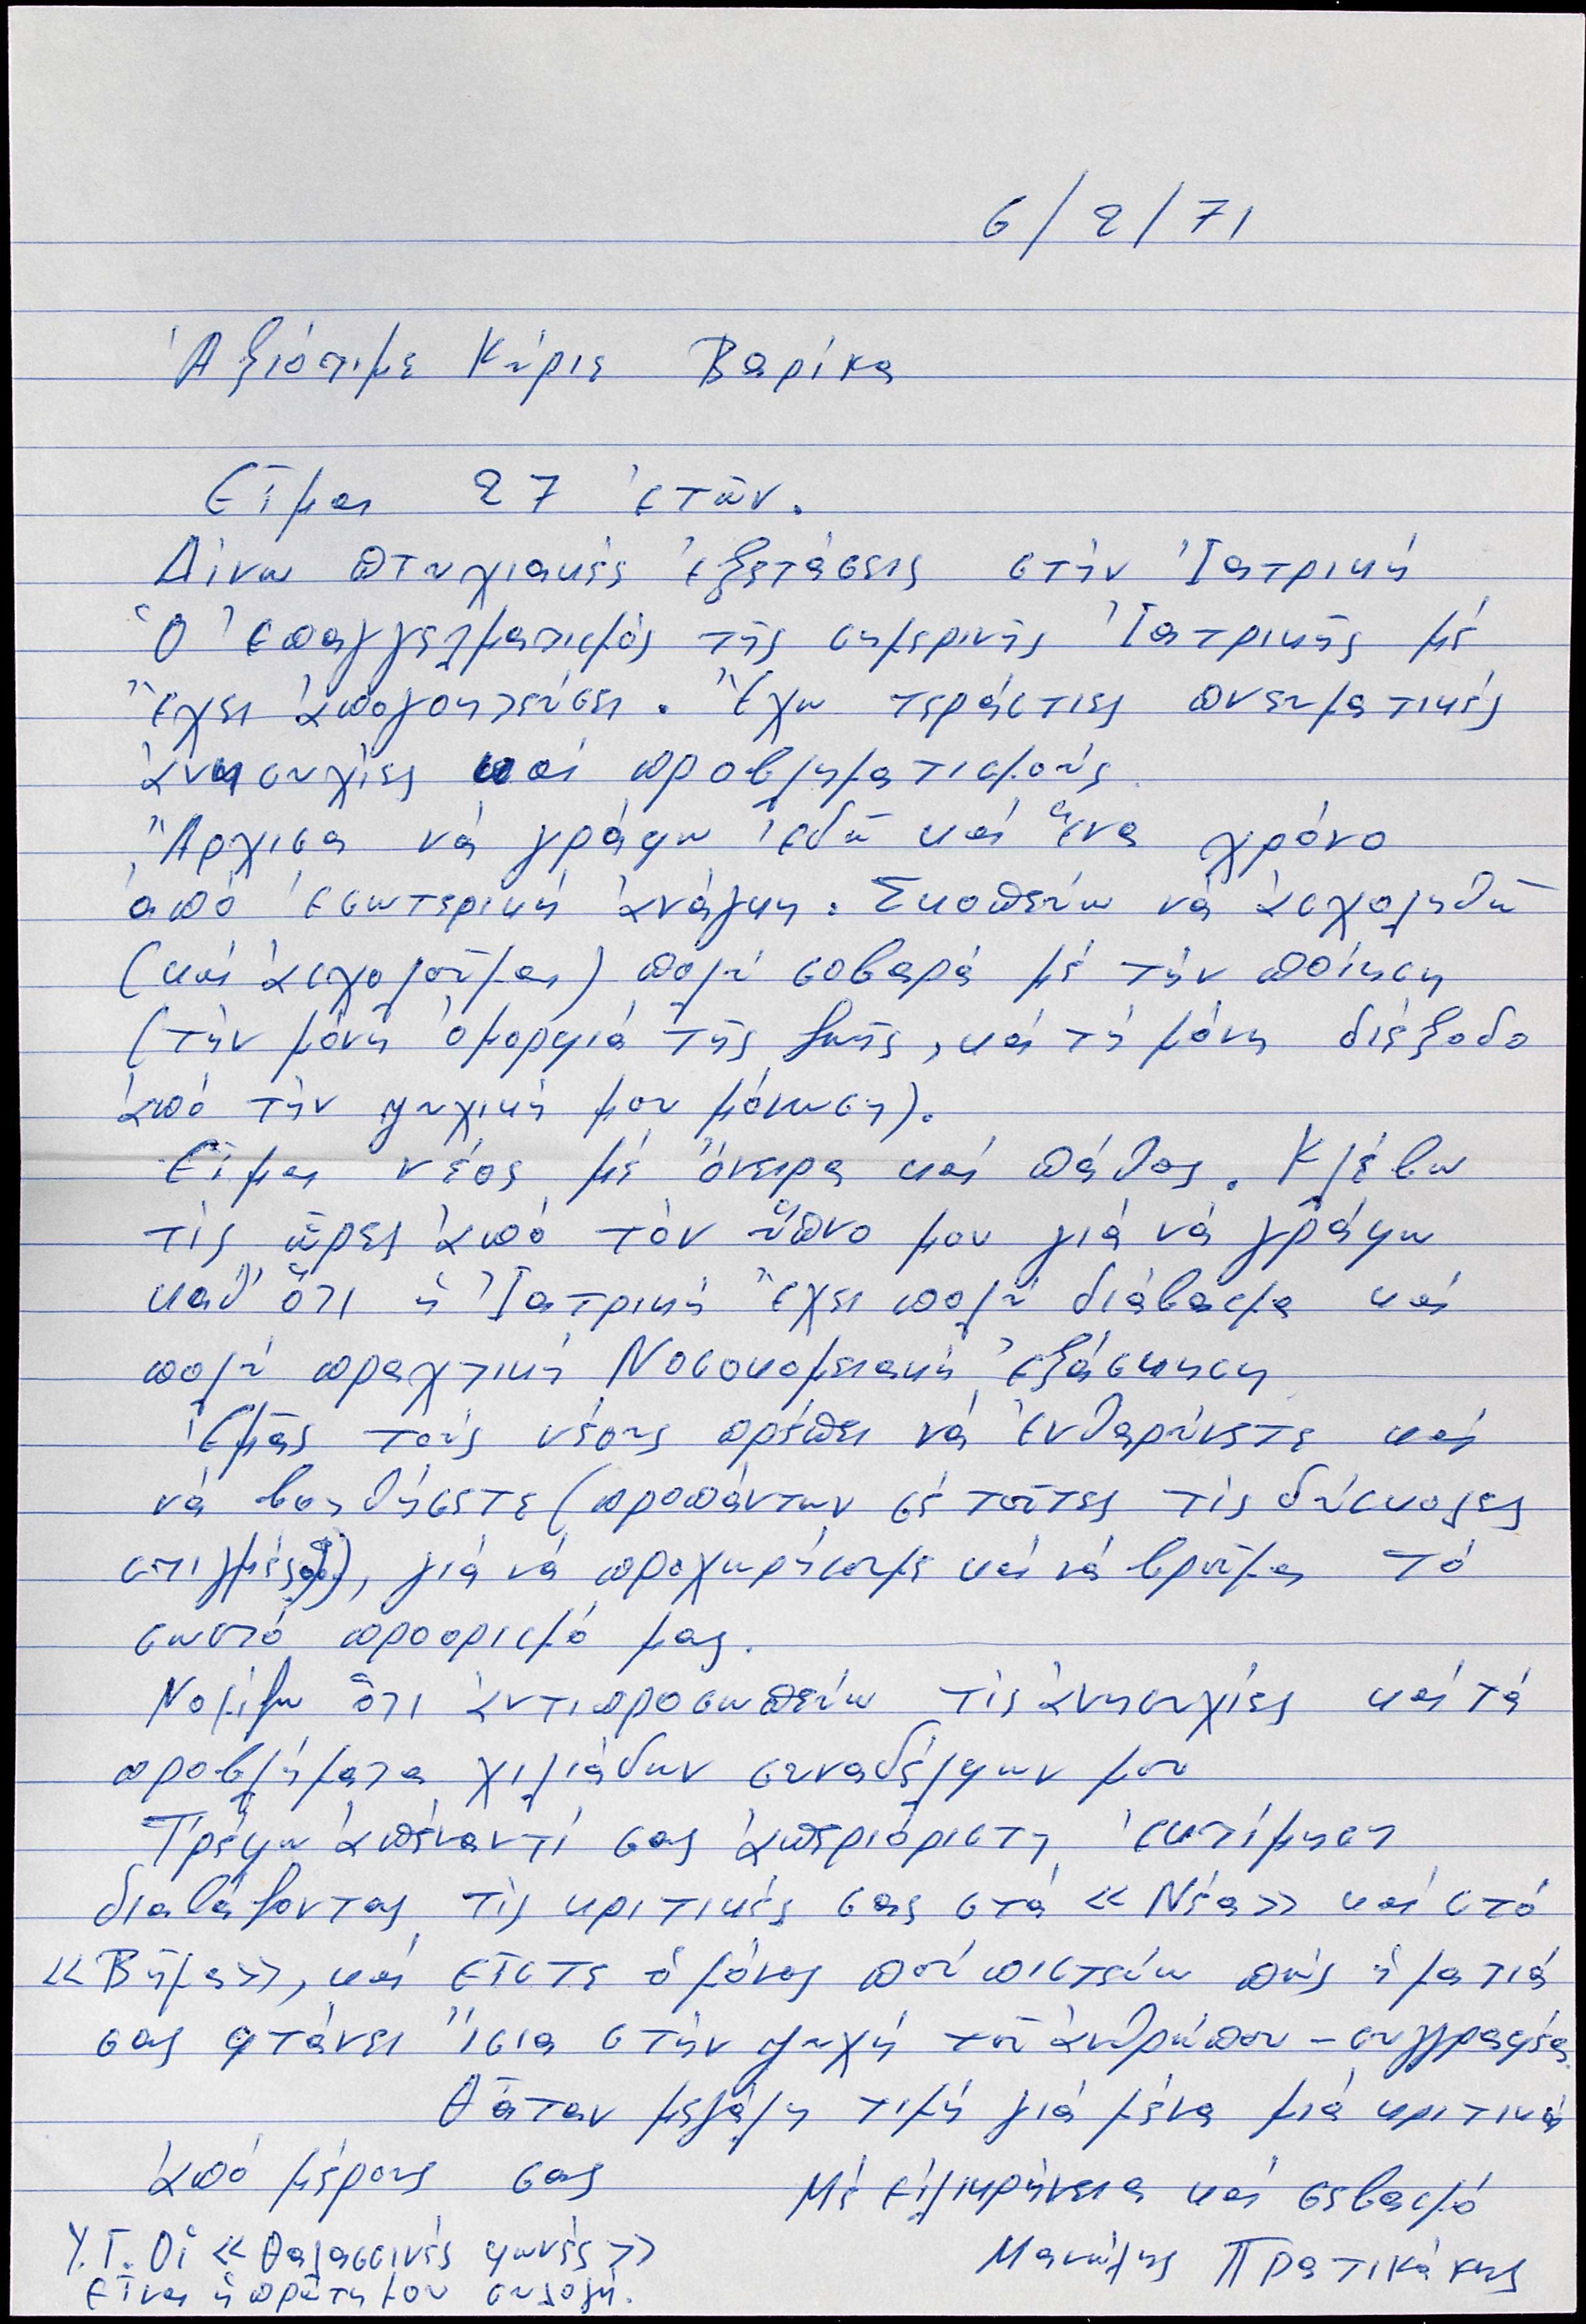 6/2/71
Ἀξιότιμε Κύριε Βαρίκα
Εἶμαι 27 ἐτῶν.
Δίνω πτυχιακές ἐξετάσεις στήν Ἰατρική
Ὁ ἐπαγγελματισμός τῆς σημερινῆς Ἰατρικῆς μέ
ἔχει ἀπογοητεύσει. Ἔχω τεράστιες πνευματικές
ἀνησυχίες καί προβληματισμούς.
Ἄρχισα νά γράφω ἐδῶ καί ἕνα χρόνο
ἀπό ἐσωτερική ἀνάγκη. Σκοπεύω νά ἀσχοληθῶ
(καί ἀσχολοῦμαι) πολύ σοβαρά μέ τήν ποίηση
(τήν μόνη ὀμορφιά τῆς ζωῆς, καί τή μόνη διέξοδο
ἀπό τήν ψυχική μου μόνωση).
Εἶμαι νέος μέ ὄνειρα καί πάθος. Κλέβω
τίς ὧρες ἀπό τόν ὕπνο μου γιά νά γράφω
καθ' ὅτι ἡ Ἰατρική ἔχει πολύ διάβασμα καί
πολύ πραχτική Νοσοκομειακή ἐξάσκηση
Ἐμᾶς τούς νέους πρέπει νά ἐνθαρύνετε καί
νά βοηθήσετε (προπάντων σέ τοῦτες τίς δύσκολες
στιγμές), γιά νά προχωρήσουμε καί νά βροῦμε τό
σωστό προορισμό μας.
Νομίζω ὅτι ἀντιπροσωπεύω τίς ἀνησυχίες καί τά
προβλήματα χιλιάδων συναδέλφων μου
Τρέφω ἀπέναντί σας ἀπεριόριστη ἐκτίμηση
διαβάζοντας τίς κριτικές σας στά «Νέα» καί στό
«Βῆμα», καί εἶστε ὁ μόνος πού πιστεύω πώς ἡ ματιά
σας φτάνει ἴσια στήν ψυχή τοῦ ἀνθρώπου - συγγραφέα.
Θἆταν μεγάλη τιμή γιά μένα μιά κριτική
ἀπό μέρους σας
Μέ εἰλικρίνεια καί σεβασμό
Μανώλης Πρατικάκης
Υ.Γ. Οἱ «Θαλασσινές φωνές»
εἶναι ἡ πρώτη μου συλλογή.